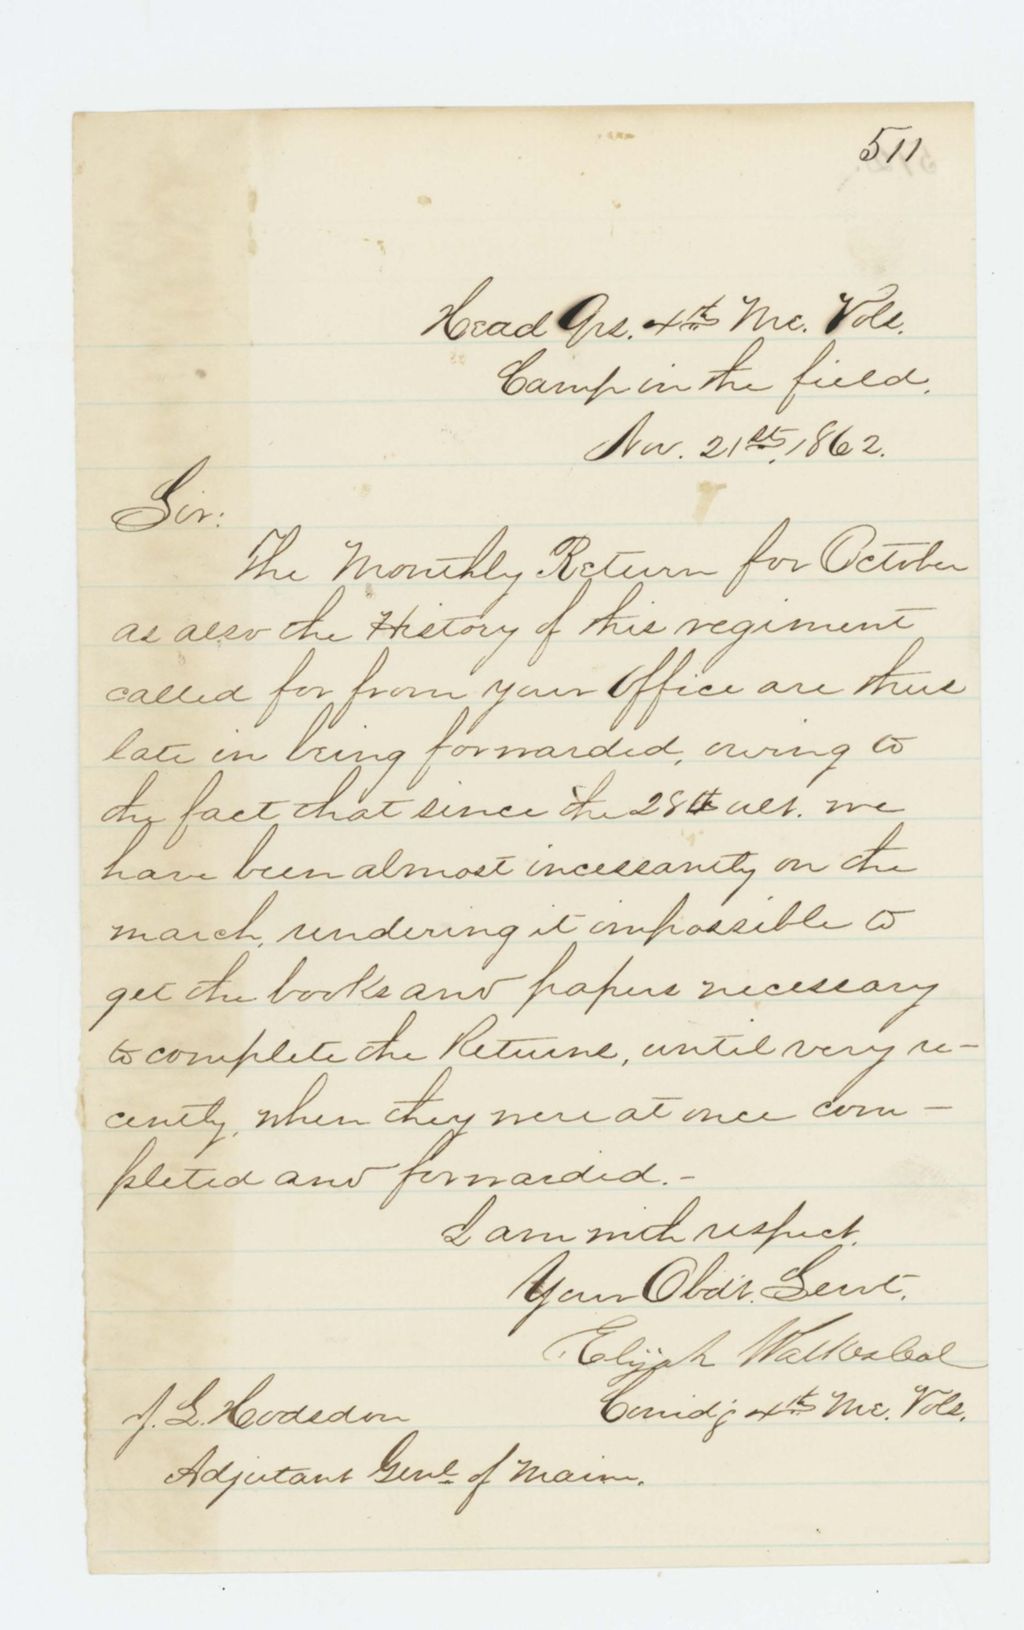 511
Head Qrs. 4th Me. Vols.
Camp in the field.
Nov. 21st, 1862.
Sir:
The Monthly Return for October
as also the History of this regiment
called for from your Office are thus
late in being forwarded, owing to
the fact that since the 28th ult. we
have been almost incessantly on the
march, rendering it impossible to
get the books and papers necessary
to complete the Returns, until very re-
cently, when they were at once com-
pleted and forwarded.-
I am with respect.
Your Obdt. Servt.
Elijah Walker Col
Comdg 4th Me. Vols.
J. L. Hodsdon
Adjutant Genl. of Maine.